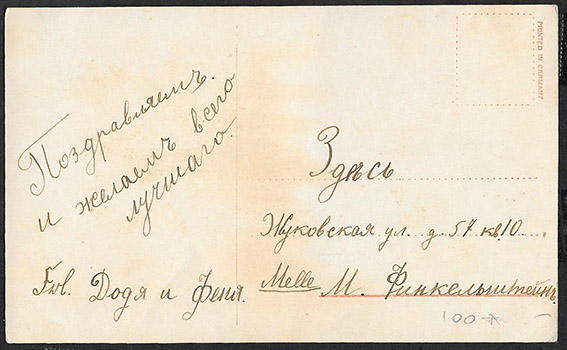 Поздравляемъ
и желаемъ всего
лучшаго.
Frl. Додя и Феня.
PRINTED IN GERMANY
Здѣсь
Жуковская ул. д 57 кв. 10.
Melle М. Финкельштейнъ
100